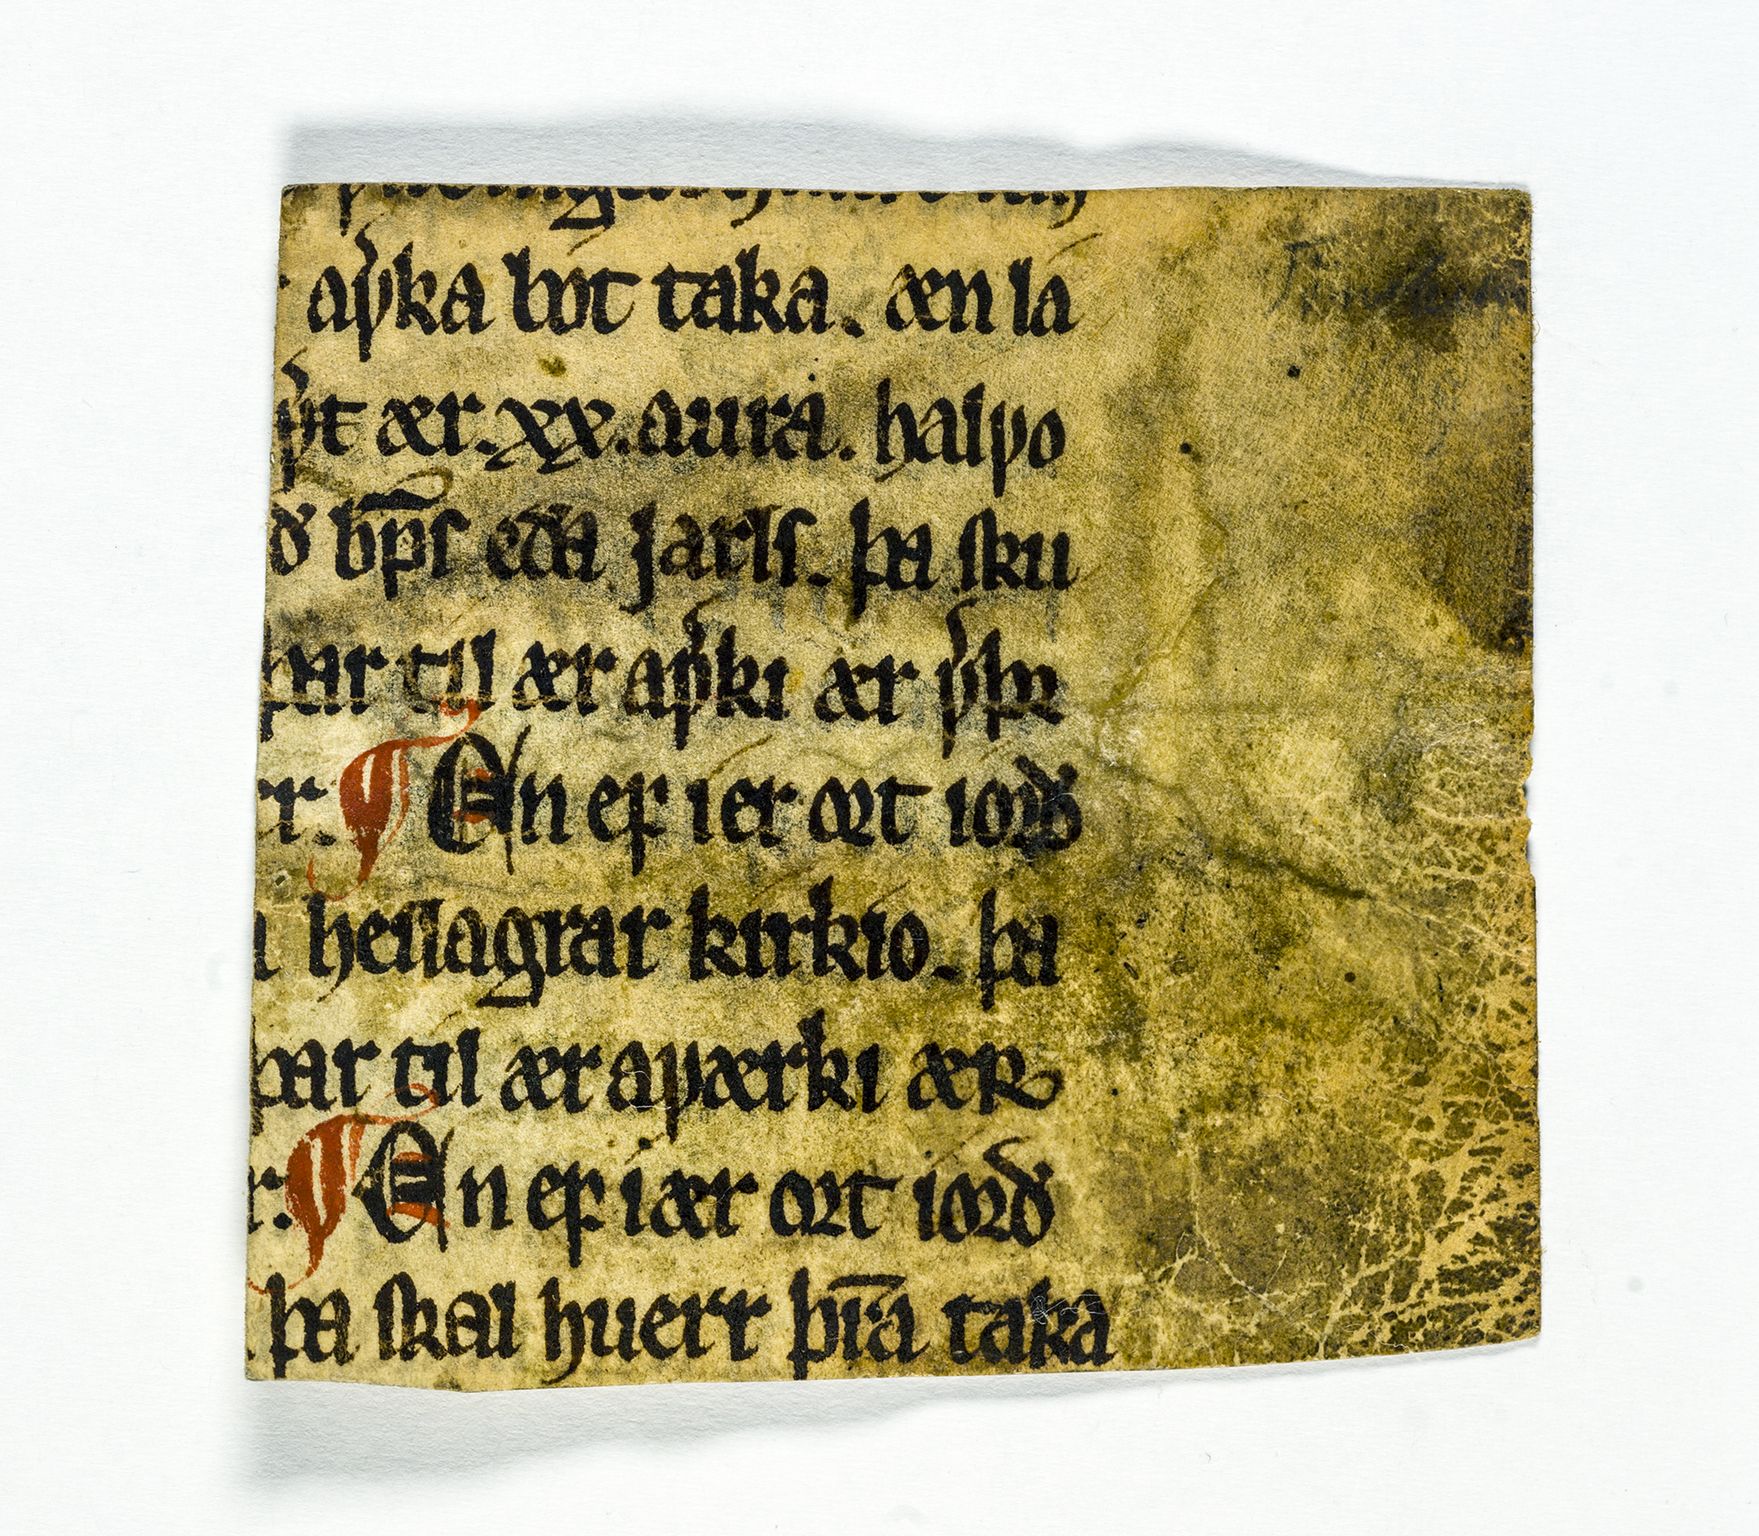 aꝩka bot taka. æn la
ꝩt ær. xx. aura. halꝩo
ð bps̄ eða jarls. þa sku
þar til ær aꝩki ær ꝩþꝛ
r. ¶ En ef ier ort iorð
heilagrar kirkio. þa
þar til ær aꝩærki æʀ
r. ¶ En ef i ær ort iorð
þa skal huerr þr̄a taka